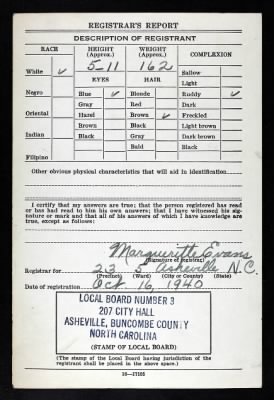 REGISTRAR'S REPORT
DESCRIPTION OF REGISTRANT
RACE HEIGHT (Approx.) WEIGHT (Approx.) COMPLEXION
White ✓ 5-11 162 Sallow
EYES HAIR Light
Negro Blue ✓ Blonde Ruddy ✓
Gray Red Dark
Oriental Hazel Brown ✓ Freckled
Brown Black Light brown
Indian Black Gray Dark brown
Bald Black
Filipino
Other obvious physical characteristics that will aid in identification
I certify that my answers are true; that the person registered has read
or has had read to him his own answers; that I have witnessed his sig-
nature or mark and that all of his answers of which I have knowledge are
true, except as follows:
Margueritte Evans
(Signature of registrar)
Registrar for 23 2 Asheville N.C.
(Precinct) (Ward) (City or County) (State)
Date of registration Oct. 16, 1940
LOCAL BOARD NUMBER 3
207 CITY HALL
ASHEVILLE, BUNCOMBE COUNTY
NORTH CAROLINA
(STAMP OF LOCAL BOARD)
(The stamp of the Local Board having jurisdiction of the
registrant shall be placed in the above space.)
16—17105